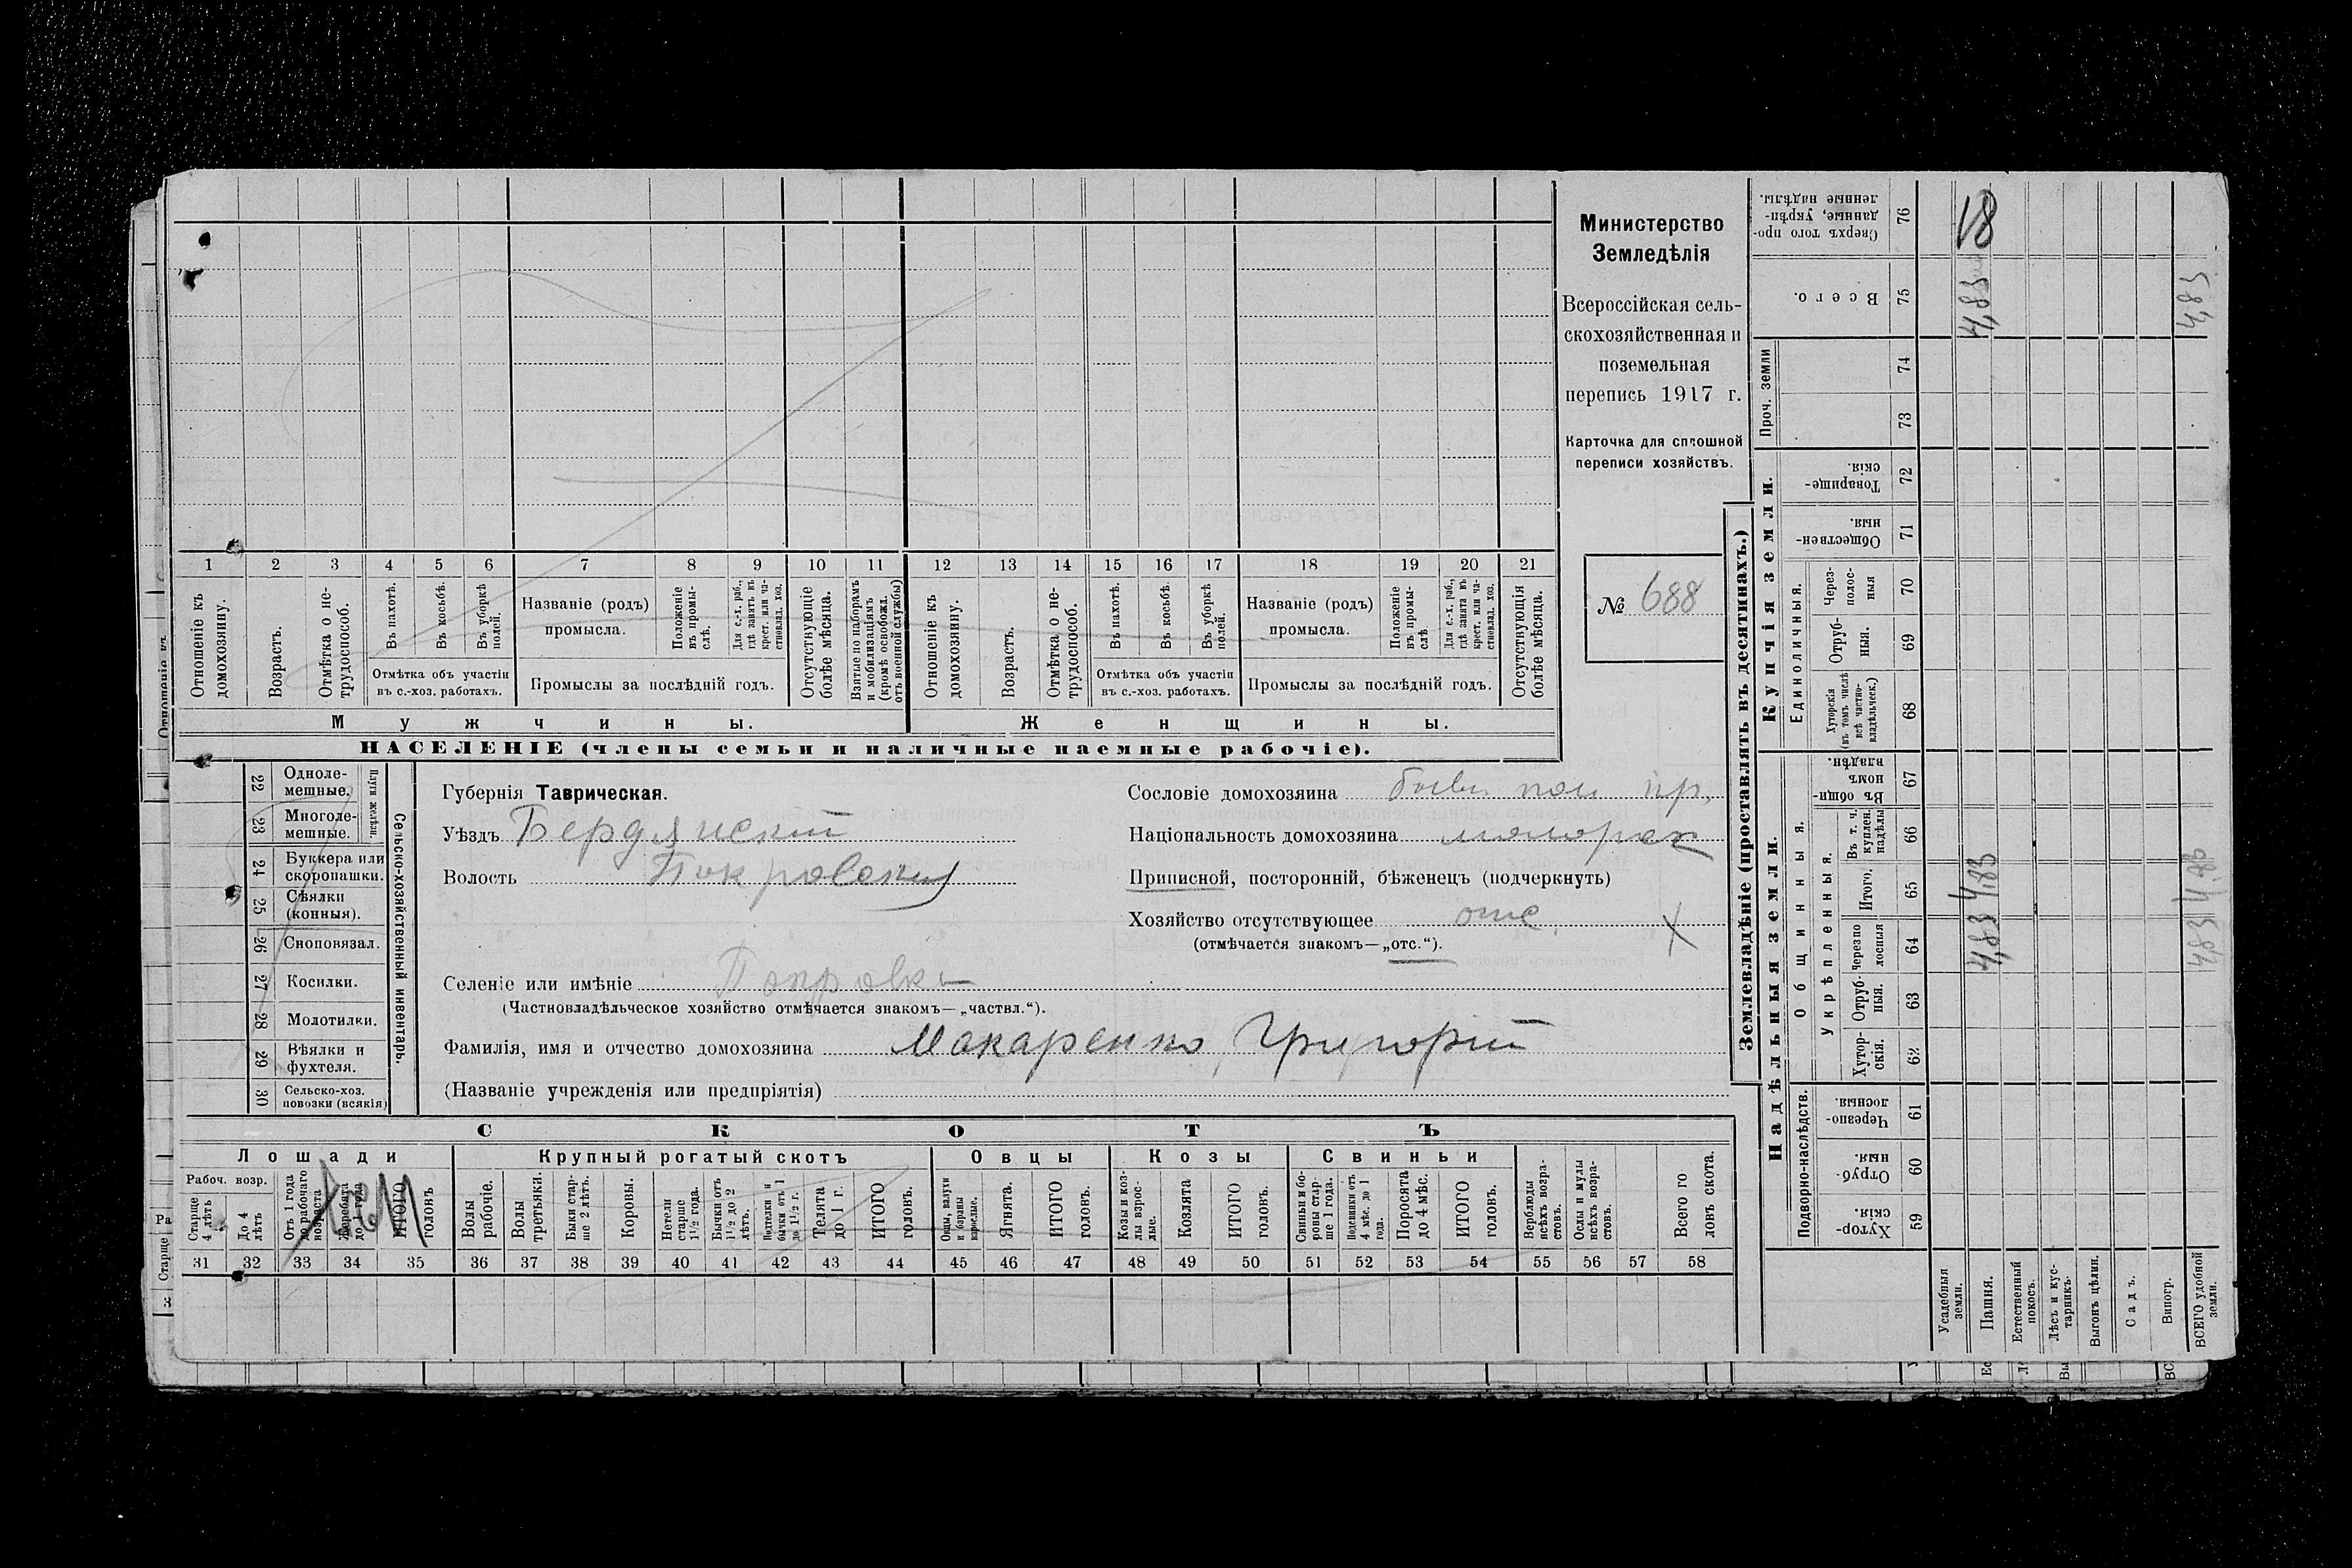 Министерство
Земледѣлія
Всероссійская сель-
скохозяйственная и
поземельная
перепись 1917 г.
Карточка для сплошной
переписи хозяйствъ.
№ 688
1 2 3 4 5 6 7 8 9 10 11 12 13 14 15 16 17 18 19 20 21
Отношеніе къ домохозяину.
Возрастъ.
Отмѣтка о не-трудоспособ.
Въ пахотѣ.
Въ косьбѣ.
Въ уборкѣ полей.
Отмѣтка объ участіи
въ с.-хоз. работахъ.
Названіе (родъ)
промысла.
Положеніе въ промы-слѣ.
Для с.-х. раб., гдѣ занятъ въ крест. или ча-стновлад. хоз.
Промыслы за послѣдній годъ.
Отсутствующіе болѣе мѣсяца.
Взятые по наборамъ и мобилизаціямъ (кромѣ освобожд. отъ военной службы)
Отношеніе къ домохозяину.
Возрастъ.
Отмѣтка о не-трудоспособ.
Въ пахотѣ.
Въ косьбѣ.
Въ уборкѣ полей.
Отмѣтка объ участіи
въ с.-хоз. работахъ.
Названіе (родъ)
промысла.
Положеніе въ промы-слѣ
Для с.-х. раб., гдѣ занята въ крест. или ча-стновлад. хоз.
Промыслы за послѣдній годъ.
Отсутствующія болѣе мѣсяца.
Мужчины.
Женщины.
НАСЕЛЕНІЕ (члены семьи и наличные наемные рабочіе).
22 Одноле-мешные.
23 Многоле-мешные.
24 Буккера или скоропашки.
25 Сѣялки (конныя).
26 Сноповязал.
27 Косилки.
28 Молотилки.
29 Вѣялки и фухтеля.
30 Сельско-хоз. повозки (всякія)
Сельско-хозяйственный инвентарь.
Губернія Таврическая.
Уѣздъ Бердянскій
Волость Покровская
Селеніе или имѣніе Покровка
(Частновладѣльческое хозяйство отмѣчается знакомъ—„частвл.“).
Фамилія, имя и отчество домохозяина Макаренко Григорій
(Названіе учрежденія или предпріятія)
Сословіе домохозяина
Національность домохозяина малорос
Приписной, посторонній, бѣженецъ (подчеркнуть)
Хозяйство отсутствующее отс
(отмѣчается знакомъ—„отс.“).
СКОТЪ
Лошади
Крупный рогатый скотъ
Овцы
Козы
Свиньи
Рабоч. возр.
Старше 4 лѣтъ
До 4 лѣтъ
Отъ 1 года до рабочаго возраста
Жеребята до 1 года
ИТОГО головъ
Волы рабочіе.
Волы третьяки.
Быки стар-ше 2 лѣтъ.
Коровы.
Нетели старше 1½ года.
Бычки отъ 1½ до 2 лѣтъ.
Подтелки и бычки отъ 1 до 1½ г.
Телята до 1 г.
ИТОГО головъ.
Овцы, валухи и бараны взрослые.
Ягнята.
ИТОГО головъ.
Козы и коз-лы взрос-лые.
Козлята
ИТОГО головъ.
Свиньи и бо-ровы стар-ше 1 года.
Подсвинки отъ 4 мѣс. до 1 года.
Поросята до 4 мѣс.
ИТОГО головъ.
Верблюды всѣхъ возра-стовъ.
Ослы и мулы всѣхъ возра-стовъ.
Всего го ловъ скота.
31 32 33 34 35 36 37 38 39 40 41 42 43 44 45 46 47 48 49 50 51 52 53 54 55 56 57 58
Землевладѣніе (проставлять въ десятинахъ.)
Купчія земли.
Надѣльныя земли.
Сверхъ того про-данные, укрѣп-ленные надѣлы. 76
18
Всего. 75
4,83
4,83
Проч. земли
74
73
Товарище-скія. 72
Обществен-ныя. 71
Единоличныя.
Через-полос-ныя 70
Отруб-ныя. 69
Хуторскія (въ томъ числѣ всѣ частно-владѣльческ.) 68
Общинныя.
Въ общи-номъ владѣн. 67
Укрѣпленныя.
Въ т. ч. куплен. надѣлы 66
Итого. 65
4,83
4,83
Черезпо лосныя 64
4,83
4,83
Отруб-ныя. 63
Хутор-скія. 62
Подворно-наслѣдств.
Черезпо-лосныя. 61
Отруб-ныя. 60
Хутор-скія. 59
Усадебныя земли.
Пашня.
Естественный покосъ.
Лѣсъ и кус-тарникъ.
Выгонъ цѣлин.
Садъ.
Виногр.
ВСЕГО удобной земли.